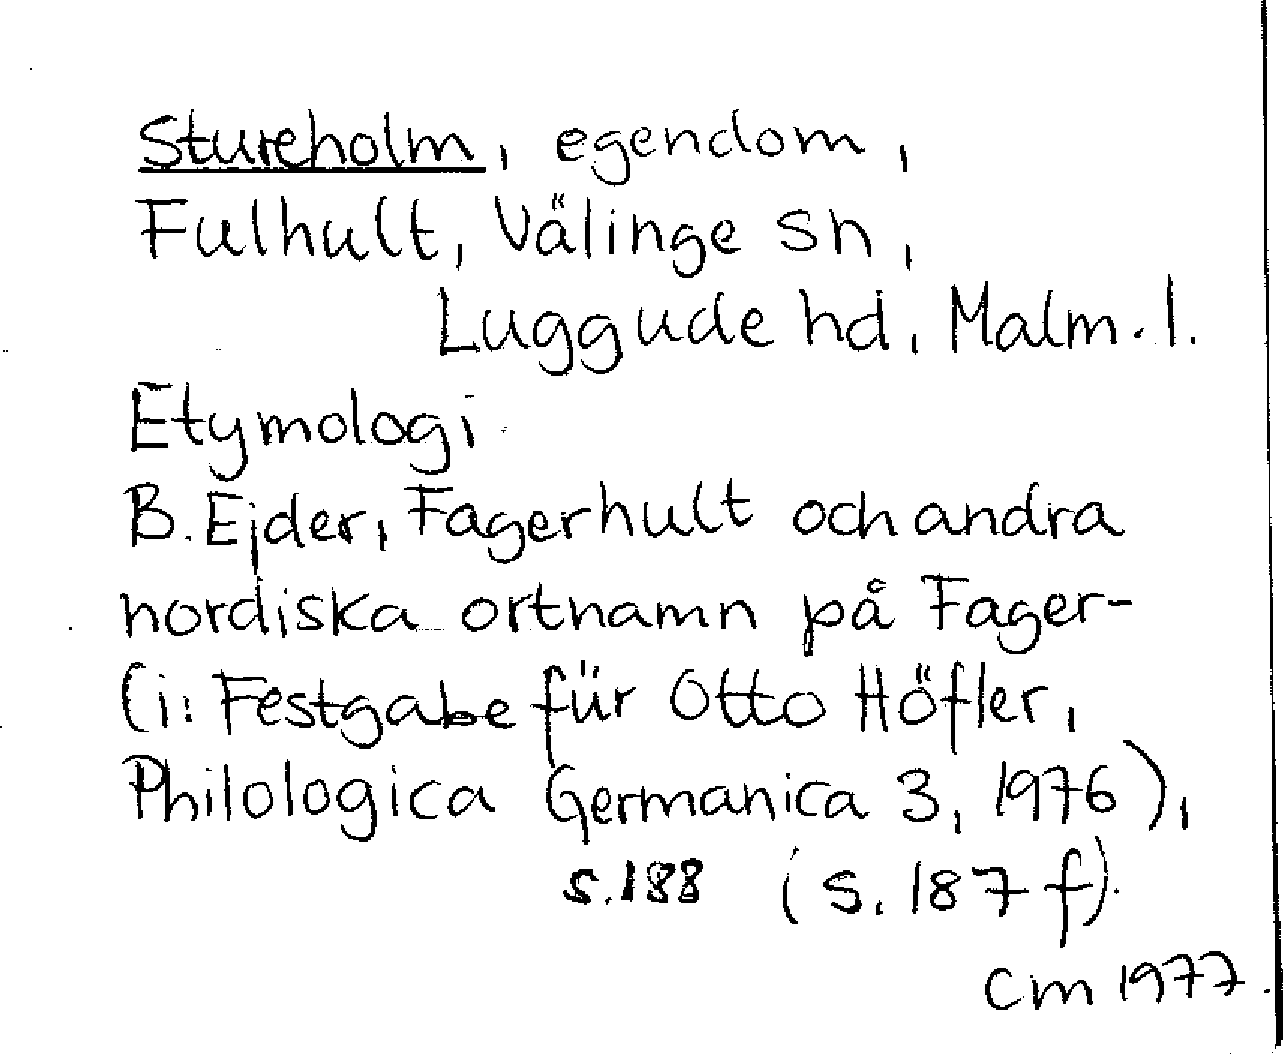 Stureholm, egendom,
Fulhult, Välinge sn,
Luggude hd, Malm. l.
Etymologi
B. Ejder, Fagerhult och andra
nordiska ortnamn på Fager-
(i: Festgabe für Otto Höfler,
Philologica Germanica 3, 1976),
s. 188 (s. 187 f).
CM 1977.